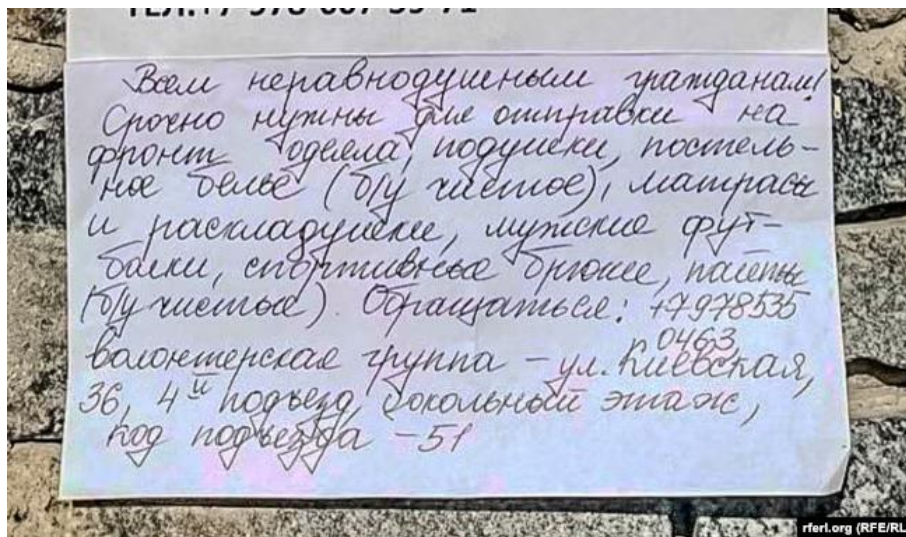 ТЕЛ.+7-978-667-59-71
Всем неравнодушным гражданам!
Срочно нужны для отправки на
фронт одеяла, подушки, постель-
ное бельё (б/у чистое), матрасы
и раскладушки, мужские фут-
болки, спортивные брюки, пледы
(б/у чистые). Обращаться: +7978535
0463,
волонтерская группа - ул. Киевская,
36, 4й подъезд, цокольный этаж,
код подъезда - 51
rferl.org (RFE/RL